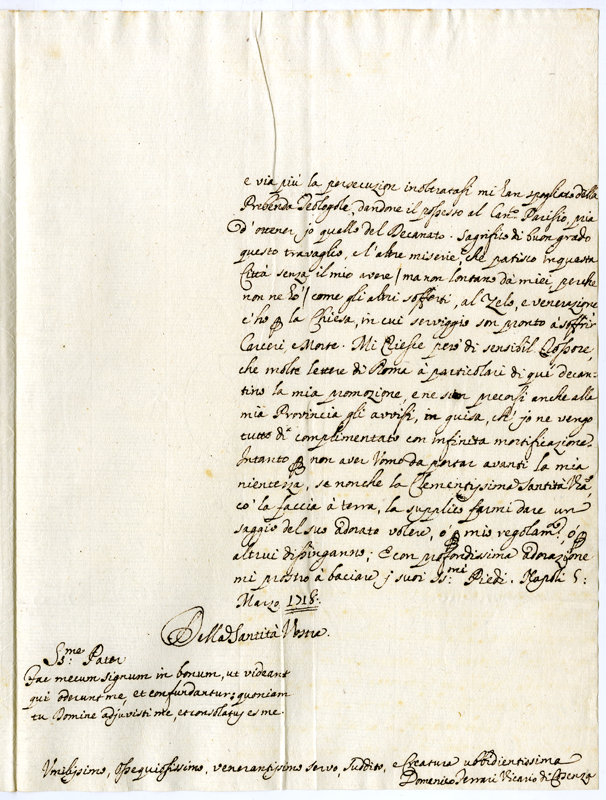 e via più la persecuzion inoltratasi mi han spogliato della
Prebenda Teologale, dandone il possesso al Can.co Parisio, pria
d'ottener jo quello del Decanato. Sagrifico di buon grado
questo travaglio, e l'altre miserie, che patisco in questa
Città senza il mio avere / ma non lontano da miei, perche
non ne hò / come gli altri sofferti, al Zelo, e venerazione
c'hò per la Chiesa, in cui serviggio son pronto à soffrir
Carceri, e Morte. Mi riesce però di sensibil rossore,
che molte lettere di Roma à particolari di quì decan-
tino la mia promozione, e ne sien precorsi anche alla
mia Provincia gli avvisi, in guisa, ch'jo ne vengo
tutto dì complimentato con infinita mortificazione.
Intanto per non aver Uomo da portar avanti la mia
nientezza, se nonche la Clementissima Santità V.ra,
co' la faccia à terra, la supplico farmi dare un
saggio del suo adorato volere, ò per mio regolam.to, ò per
altrui disinganno; E con profondissima adorazione
mi prostro à baciare j suoi SS.mi Piedi. Napoli 5:
Marzo 1718.
Della Santità Vostra.
SS.me Pater
Fac mecum signum in bonum, ut videant
qui oderunt me, et confundantur; quoniam
tu Domine adjuvisti me, et consolatus es me.
Umilissimo, Ossequiosissimo, venerantissimo servo, suddito, e Creatura ubbidientissima
Domenico Ferrari Vicario di Cosenza